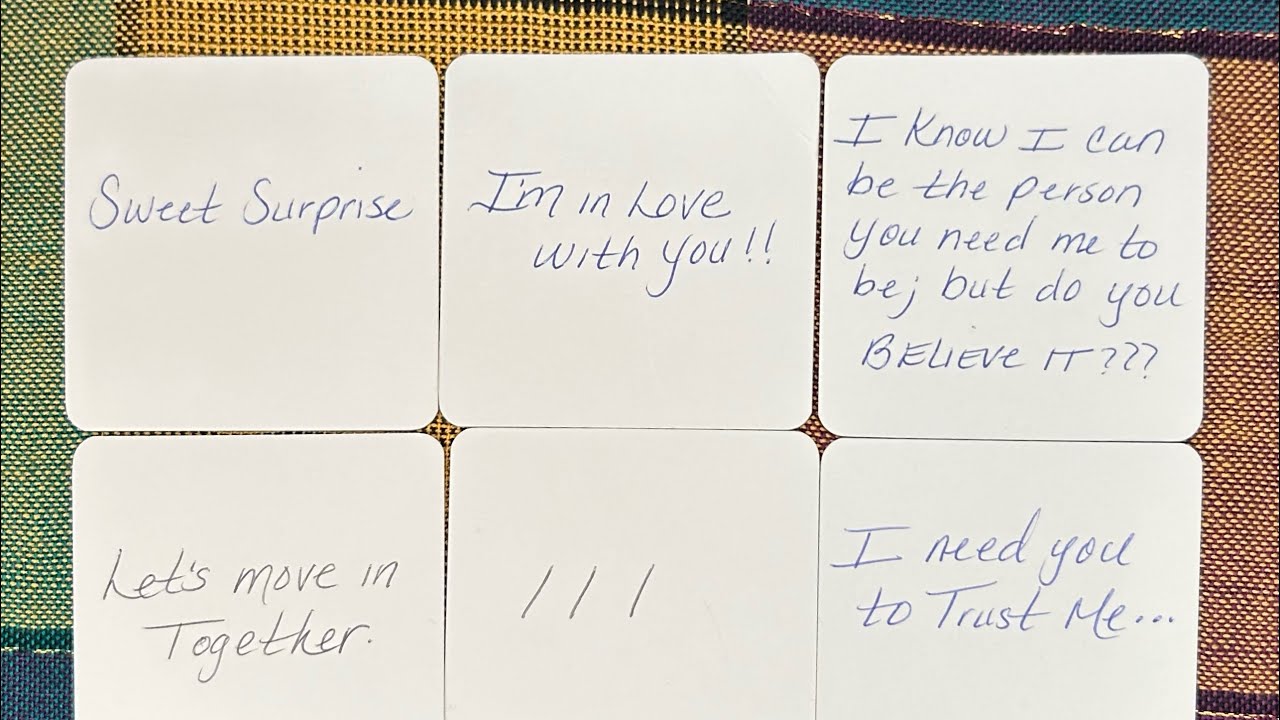 Sweet Surprise
I'm in Love
with you!!
I Know I can
be the person
you need me to
be; but do you
BELIEVE IT???
Let's move in
Together.
111
I need you
to Trust Me...